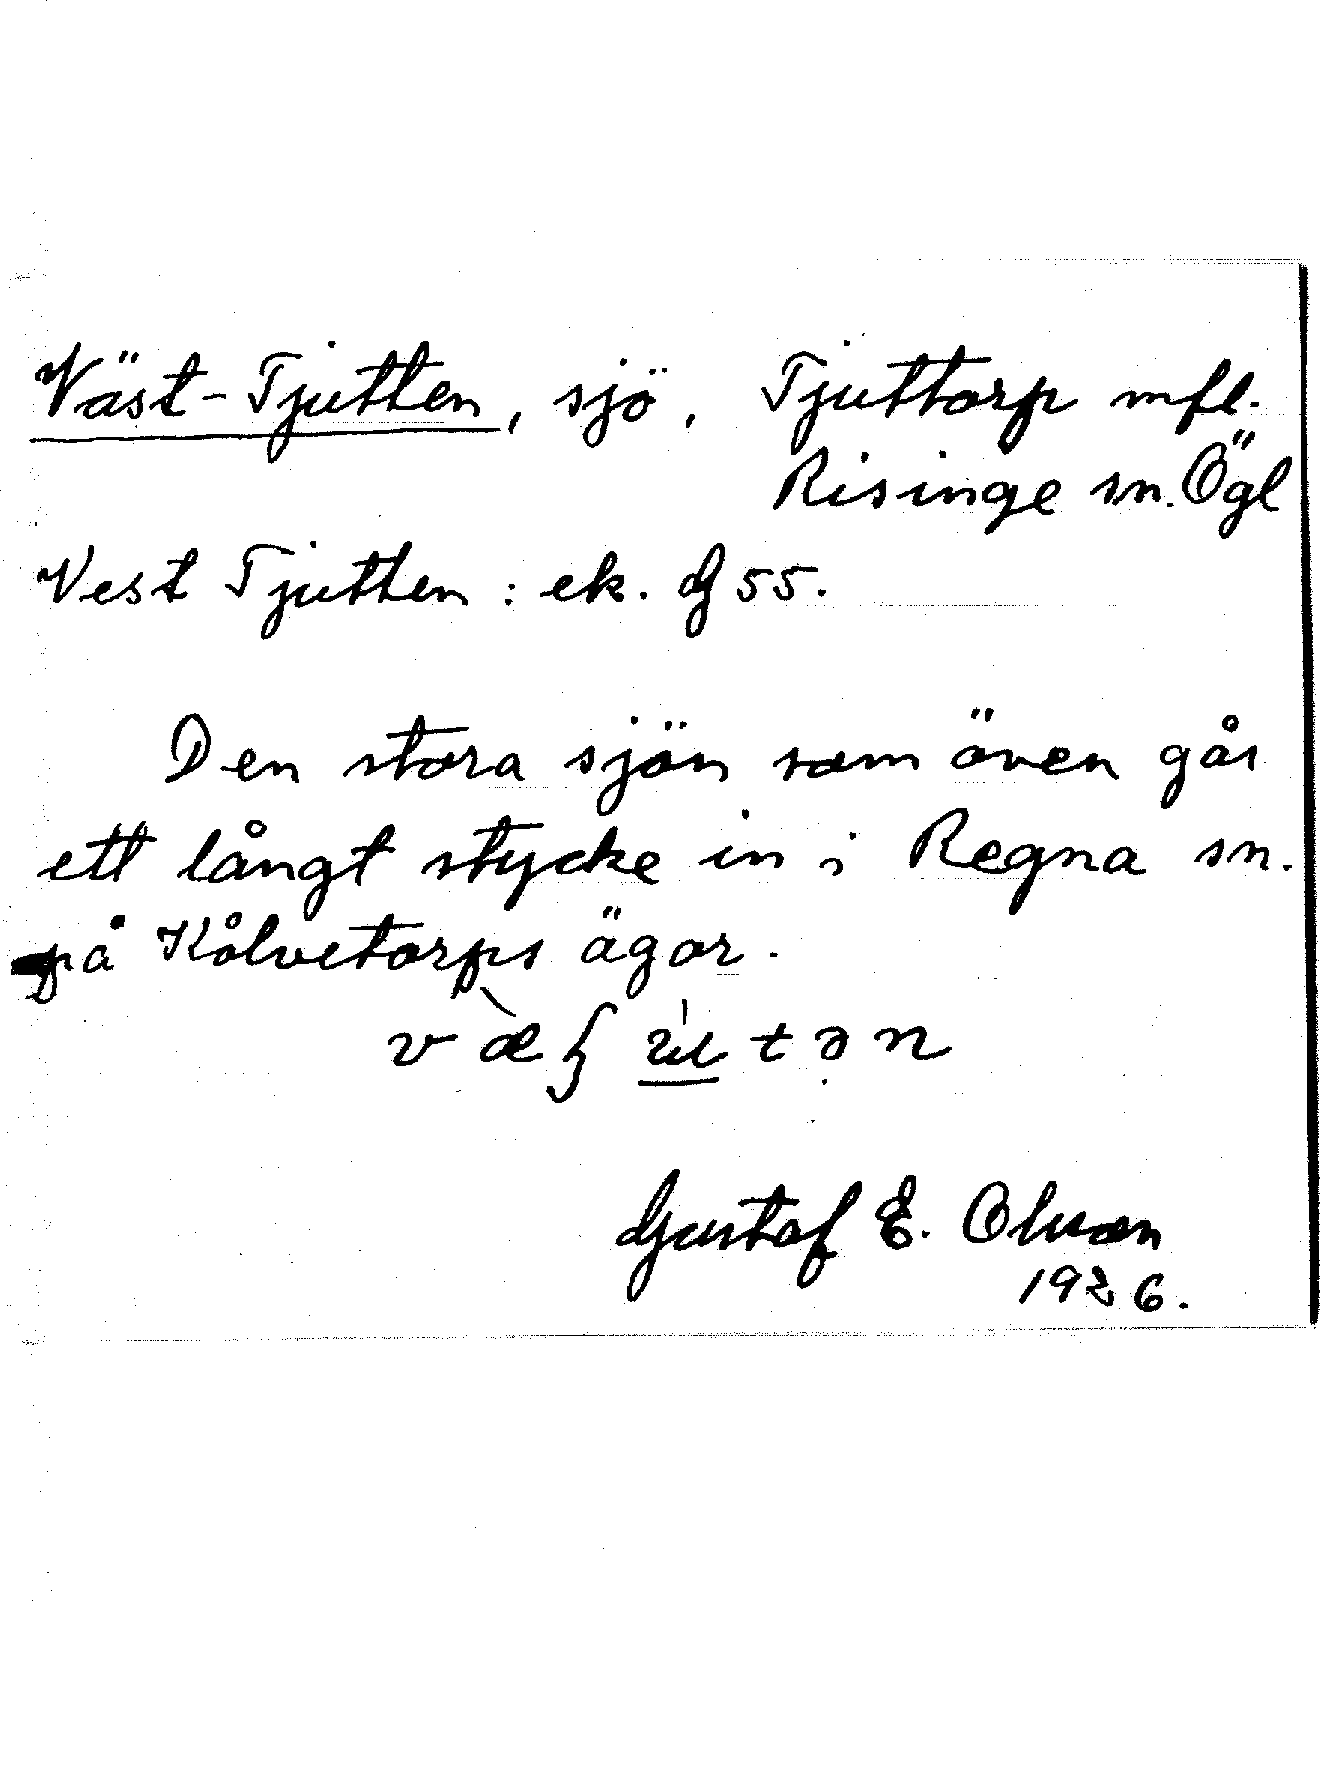 Väst-Tjutten, sjö, Tjuttorp mfl.
Risinge sn. Ögl
Vest Tjutten : ek. G 55.
Den stora sjön som även går
ett långt stycke in i Regna sn.
på Kålvetorps ägor.
Gustaf E. Olsson
1926.